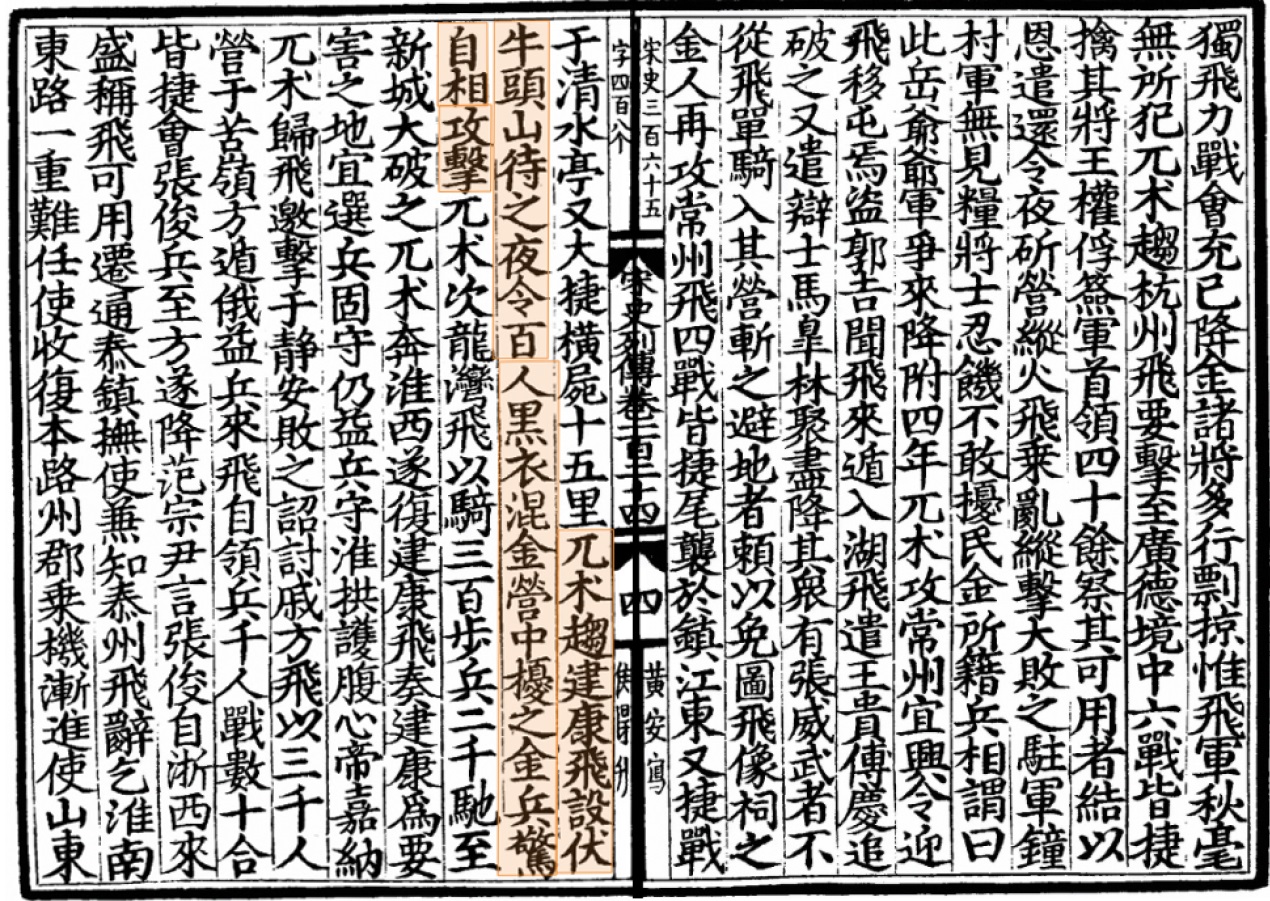 獨飛力戰會充已降金諸將多行剽掠惟飛軍秋毫
無所犯兀朮趨杭州飛要擊至廣德境中六戰皆捷
擒其將王權俘簽軍首領四十餘察其可用者結以
恩遣還令夜斫營縱火飛乗亂縱擊大敗之駐軍鐘
村軍無見糧將士忍饑不敢擾民金所籍兵相謂曰
此岳爺爺軍爭來降附四年兀朮攻常州宜興令迎
飛移屯焉盜郭吉聞飛來遁入湖飛遣王貴傅慶追
破之又遣辯士馬皐林聚盡降其衆有張威武者不
從飛單騎入其營斬之避地者頼以免圖飛像祠之
金人再攻常州飛四戰皆捷尾襲於鎮江東又捷戰
宋史三百六十五
字四百八个
宋史列傳卷一百二十四
四
黃安寫
于清水亭又大捷橫屍十五里兀朮趨建康飛設伏
牛頭山待之夜令百人黑衣混金營中擾之金兵驚
自相攻擊兀朮次龍灣飛以騎三百步兵二千馳至
新城大破之兀朮奔淮西遂復建康飛奏建康爲要
害之地宜選兵固守仍益兵守淮拱護腹心帝嘉納
兀朮歸飛邀擊于靜安敗之詔討戚方飛以三千人
營于苦嶺方遁俄益兵來飛自領兵千人戰數十合
皆捷會張俊兵至方遂降范宗尹言張俊自浙西來
盛稱飛可用遷通泰鎮撫使兼知泰州飛辭乞淮南
東路一重難任使收復本路州郡乗機漸進使山東